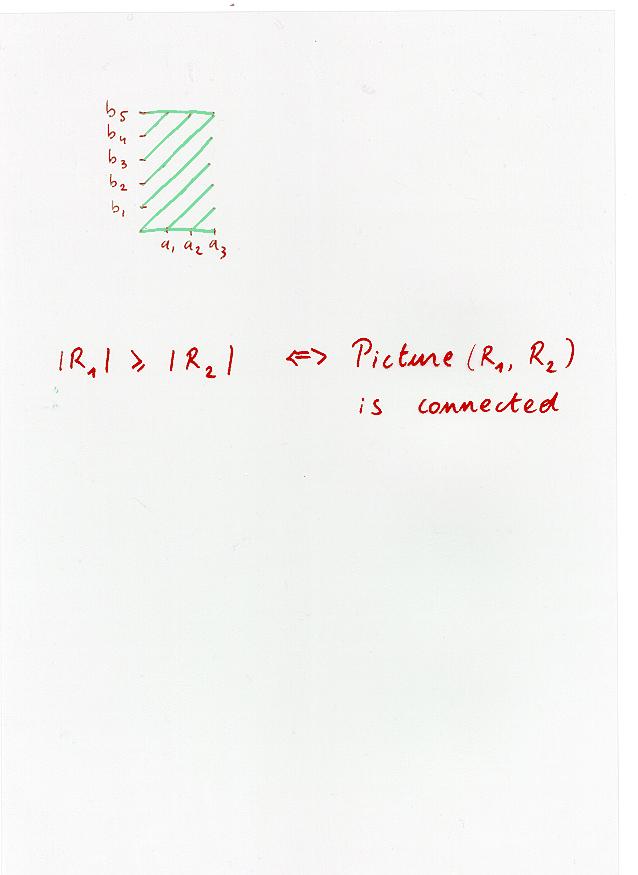 b₅
b₄
b₃
b₂
b₁
a₁ a₂ a₃
|R₁| ⩾ |R₂| ⇔ Picture (R₁, R₂)
is connected